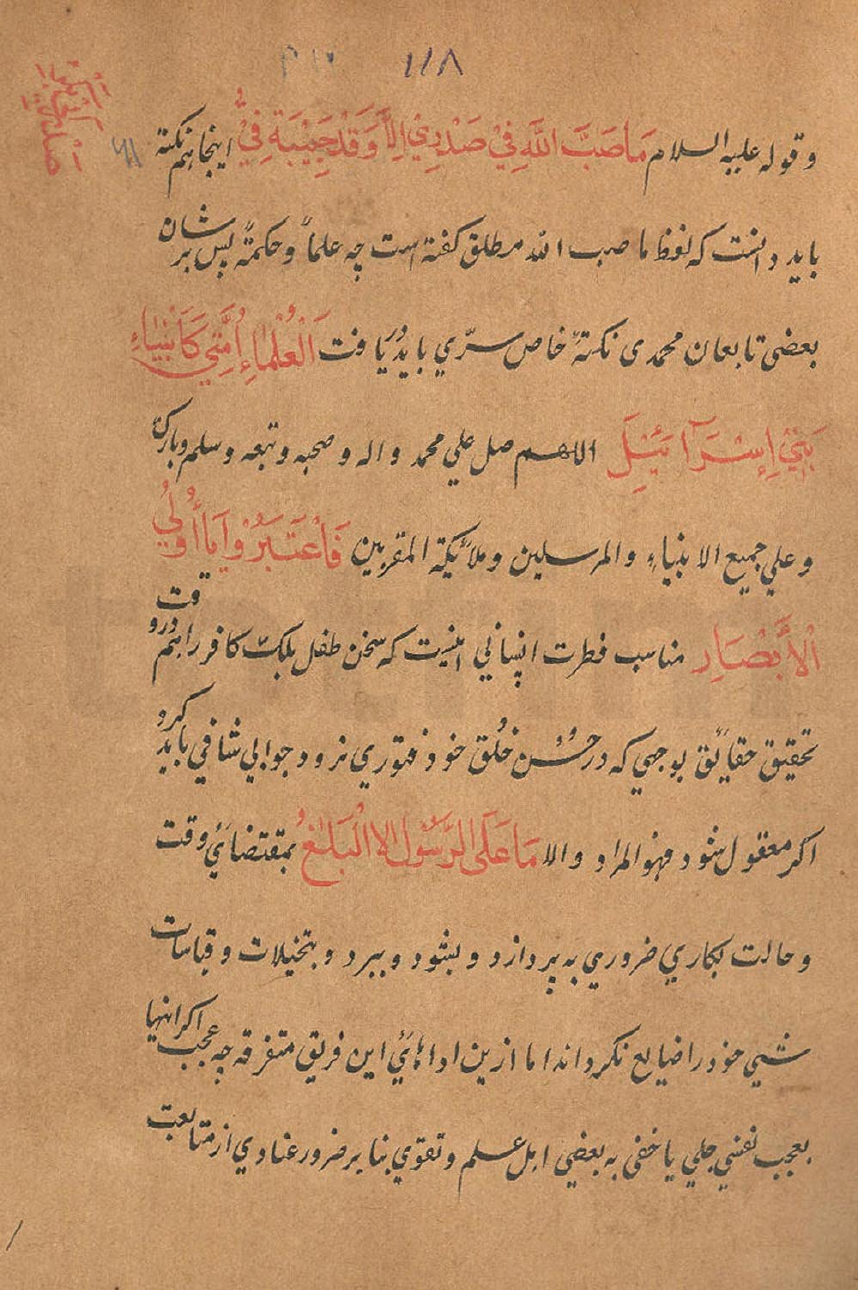 ١١٨
وقوله عليه السلام مَا صَبَّ اللَّهُ فِيْ صَدْرِيْ اِلَّا وَقَدْ اينجا هم نكتة
بايد دانست كه لفظ ما صبب الله مطلق كفته است چه علماً وحكمةً پس برشان
بعضى تابعان محمدى نكتهٔ خاص سرّي بايد دريافت اَلْعُلَمَاءِ اُمَّتِي كَاَنْبِيَاءِ
بَنِيْ اِسْرَآئِيْلَ اللهم صل علي محمد واله وصحبه وتبعه وسلم وبارك
وعلي جميع الانبياء والمرسلين وملائكة المقربين فَاعْتَبَرُوْا يَا أُولِي
الْأَبْصَارِ مناسب فطرت انساني اينست كه سخن طفل بلكه كافر را هم درو قت
تحقيق حقايق بوجهي كه در حُسْن خُلق خود فتوري نرود جوابي شافي بايد كرد
اكر معقول شود فهو المراد والا مَا عَلَى الرَّسُوْلِ الا الْبَلَاغُ بمقتضائ وقت
وحالت بكاري ضروري به پردازد وبشود وببرد وبتخيلات وقياسات
شتي خود را ضايع نكرداند اما ازين اداهائ اين فريق متفرقه چه عجب اكر اينها
بعجب نفسي جلي يا خفى به بعضي اهل علم وتقوي بنا بر ضرور عنادي از متابعت